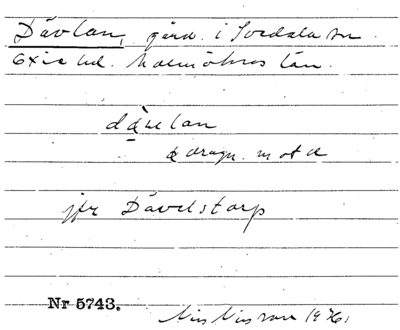 Dävlan, gård i Svedala sn
Oxie hd. Malmöhus län.
dävlan
ä dragn. mot a
jfr Dävelstorp
Nr 5743.
Nils Nilsson 1936.